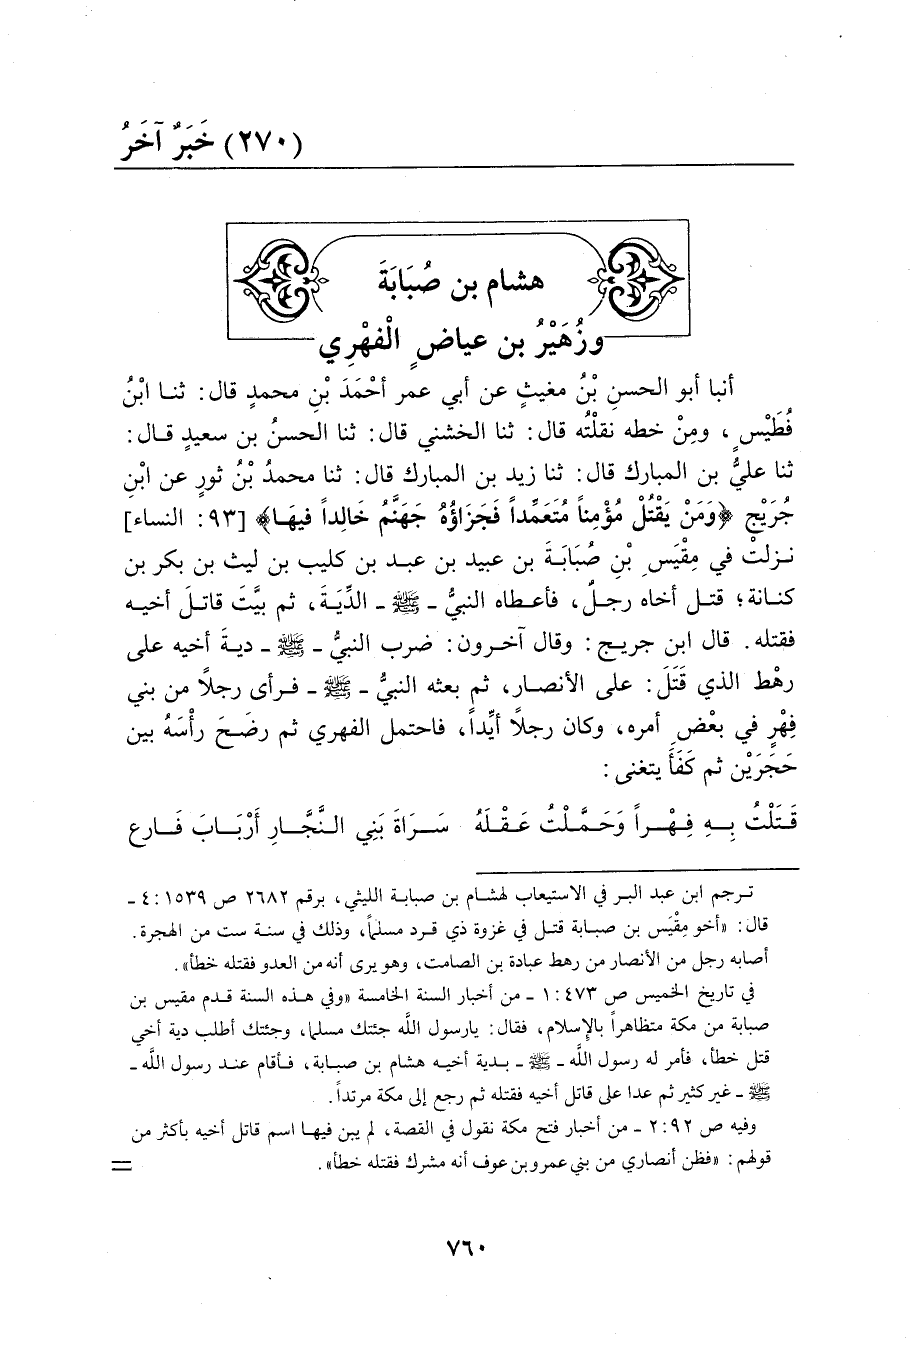 (٢٧٠) خَبَرٌ آخَرُ
هشام بن صُبَابَةَ
وزُهَيْرُ بن عياضٍ الْفِهْرِي
أنبا أبو الحسنِ بْنُ مغيثٍ عن أبي عمر أحْمَدَ بْنِ محمدٍ قال: ثنا ابْنُ
فُطَيْسٍ، ومِنْ خطه نقلْتُه قال: ثنا الخشني قال: ثنا الحسنُ بن سعيدٍ قال:
ثنا عليُّ بن المبارك قال: ثنا زيد بن المبارك قال: ثنا محمدُ بْنُ ثورٍ عن ابْنِ
جُرَيْجٍ ﴿وَمَنْ يَقْتُلْ مُؤْمِناً مُتَعَمِّداً فَجَزَاؤُهُ جَهَنَّمُ خَالِداً فيهَا﴾ [٩٣: النساء]
نزلتْ في مِقْيَسِ بْنِ صُبَابَةَ بن عبيد بن عبد بن كليب بن ليث بن بكر بن
كنانة؛ قتل أخاه رجلٌ، فأعطاه النبيُّ - ﷺ - الدِّيَةَ، ثم بيَّتَ قاتلَ أخيه
فقتله. قال ابن جريج: وقال آخرون: ضرب النبيُّ - ﷺ - ديةَ أخيه على
رهْط الذي قَتَلَ: على الأنصار، ثم بعثه النبيُّ - ﷺ - فرأى رجلاً من بني
فِهْرٍ في بعْضِ أمره، وكان رجلاً أيِّداً، فاحتمل الفهري ثم رضَحَ رأْسَهُ بين
حَجَرَيْن ثم كَفَأَ يتغنى:
قَتَلْتُ بِهِ فِهْراً وَحَمَّلْتُ عَقْلَهُ سَرَاةَ بَنِي النَّجَّارِ أَرْبَابَ فَارِع
ترجم ابن عبد البر في الاستيعاب لهشام بن صبابة الليثي، برقم ٢٦٨٢ ص ٤:١٥٣٩ -
قال: «أخو مِقْيَس بن صبابة قتل في غزوة ذي قرد مسلماً، وذلك في سنة ست من الهجرة.
أصابه رجل من الأنصار من رهط عبادة بن الصامت، وهو يرى أنه من العدو فقتله خطأ».
في تاريخ الخميس ص ١:٤٧٣ - من أخبار السنة الخامسة «وفي هذه السنة قدم مقيس بن
صبابة من مكة متظاهراً بالإسلام، فقال: يارسول اللَّه جئتك مسلما، وجئتك أطلب دية أخي
قتل خطأ، فأمر له رسول اللَّه - ﷺ - بدية أخيه هشام بن صبابة، فأقام عند رسول اللَّه -
ﷺ - غير كثير ثم عدا على قاتل أخيه فقتله ثم رجع إلى مكة مرتداً.
وفيه ص ٢:٩٢ - من أخبار فتح مكة نقول في القصة، لم يبن فيها اسم قاتل أخيه بأكثر من
قولهم: «فظن أنصاري من بني عمرو بن عوف أنه مشرك فقتله خطأ». =
٧٦٠